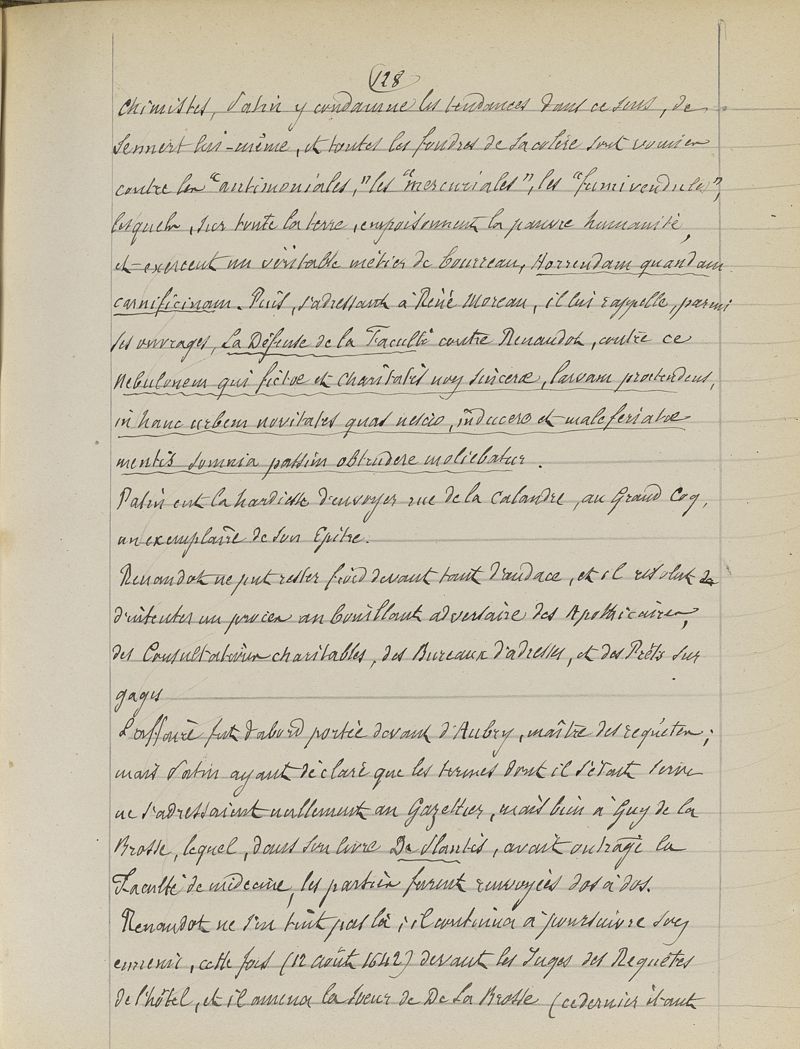 128
chimistes, Patin y condamne les tendances dans ce sens, de
Sennert lui-même, et toutes les foudres de sa colère sont vomies
contre les "antimoniales," les "mercuriales", les "fumivendules",
lesquels, sur toute la terre, empoisonnent la pauvre humanité,
et exercent un véritable métier de bourreau, Horrendam quandam
carnificinam. Puis, s'adressant à René Moreau, il lui rappelle, parmi
ses ouvrages, La Défense de la Faculté contre Renaudot, contre ce
Nebulonem qui fictæ et charitatis non sinceræ, larvam prætendens,
in hanc urbem novitates quas nescio, inducere et maleferiatæ
mentis somnia passim obtrudere moliebatur.
Patin eut la hardiesse d'envoyer rue de la Calandre, au Grand Coq,
un exemplaire de son Epitre.
Renaudot ne put rester froid devant tant d'audace, et il résolut
d'intenter un procès au bouillant adversaire des Apothicaires,
des Consultations charitables, des Bureaux d'adresses, et des Prêts sur
gages
L'affaire fut d'abord portée devant d'Aubry, maître des requêtes;
mais Patin ayant déclaré que les termes dont il s'était servi
ne s'adressaient nullement au Gazettier, mais bien à Guy de la
Brosse, lequel, dans son livre De Plantis, avait outragé la
Faculté de médecine, les parties furent renvoyées dos à dos.
Renaudot ne s'en tint pas là; il continua à poursuivre son
ennemi, cette fois (12 août 1642) devant les Juges des Requêtes
de l'hôtel, et il amena la sœur de De La Brosse (ce dernier étant